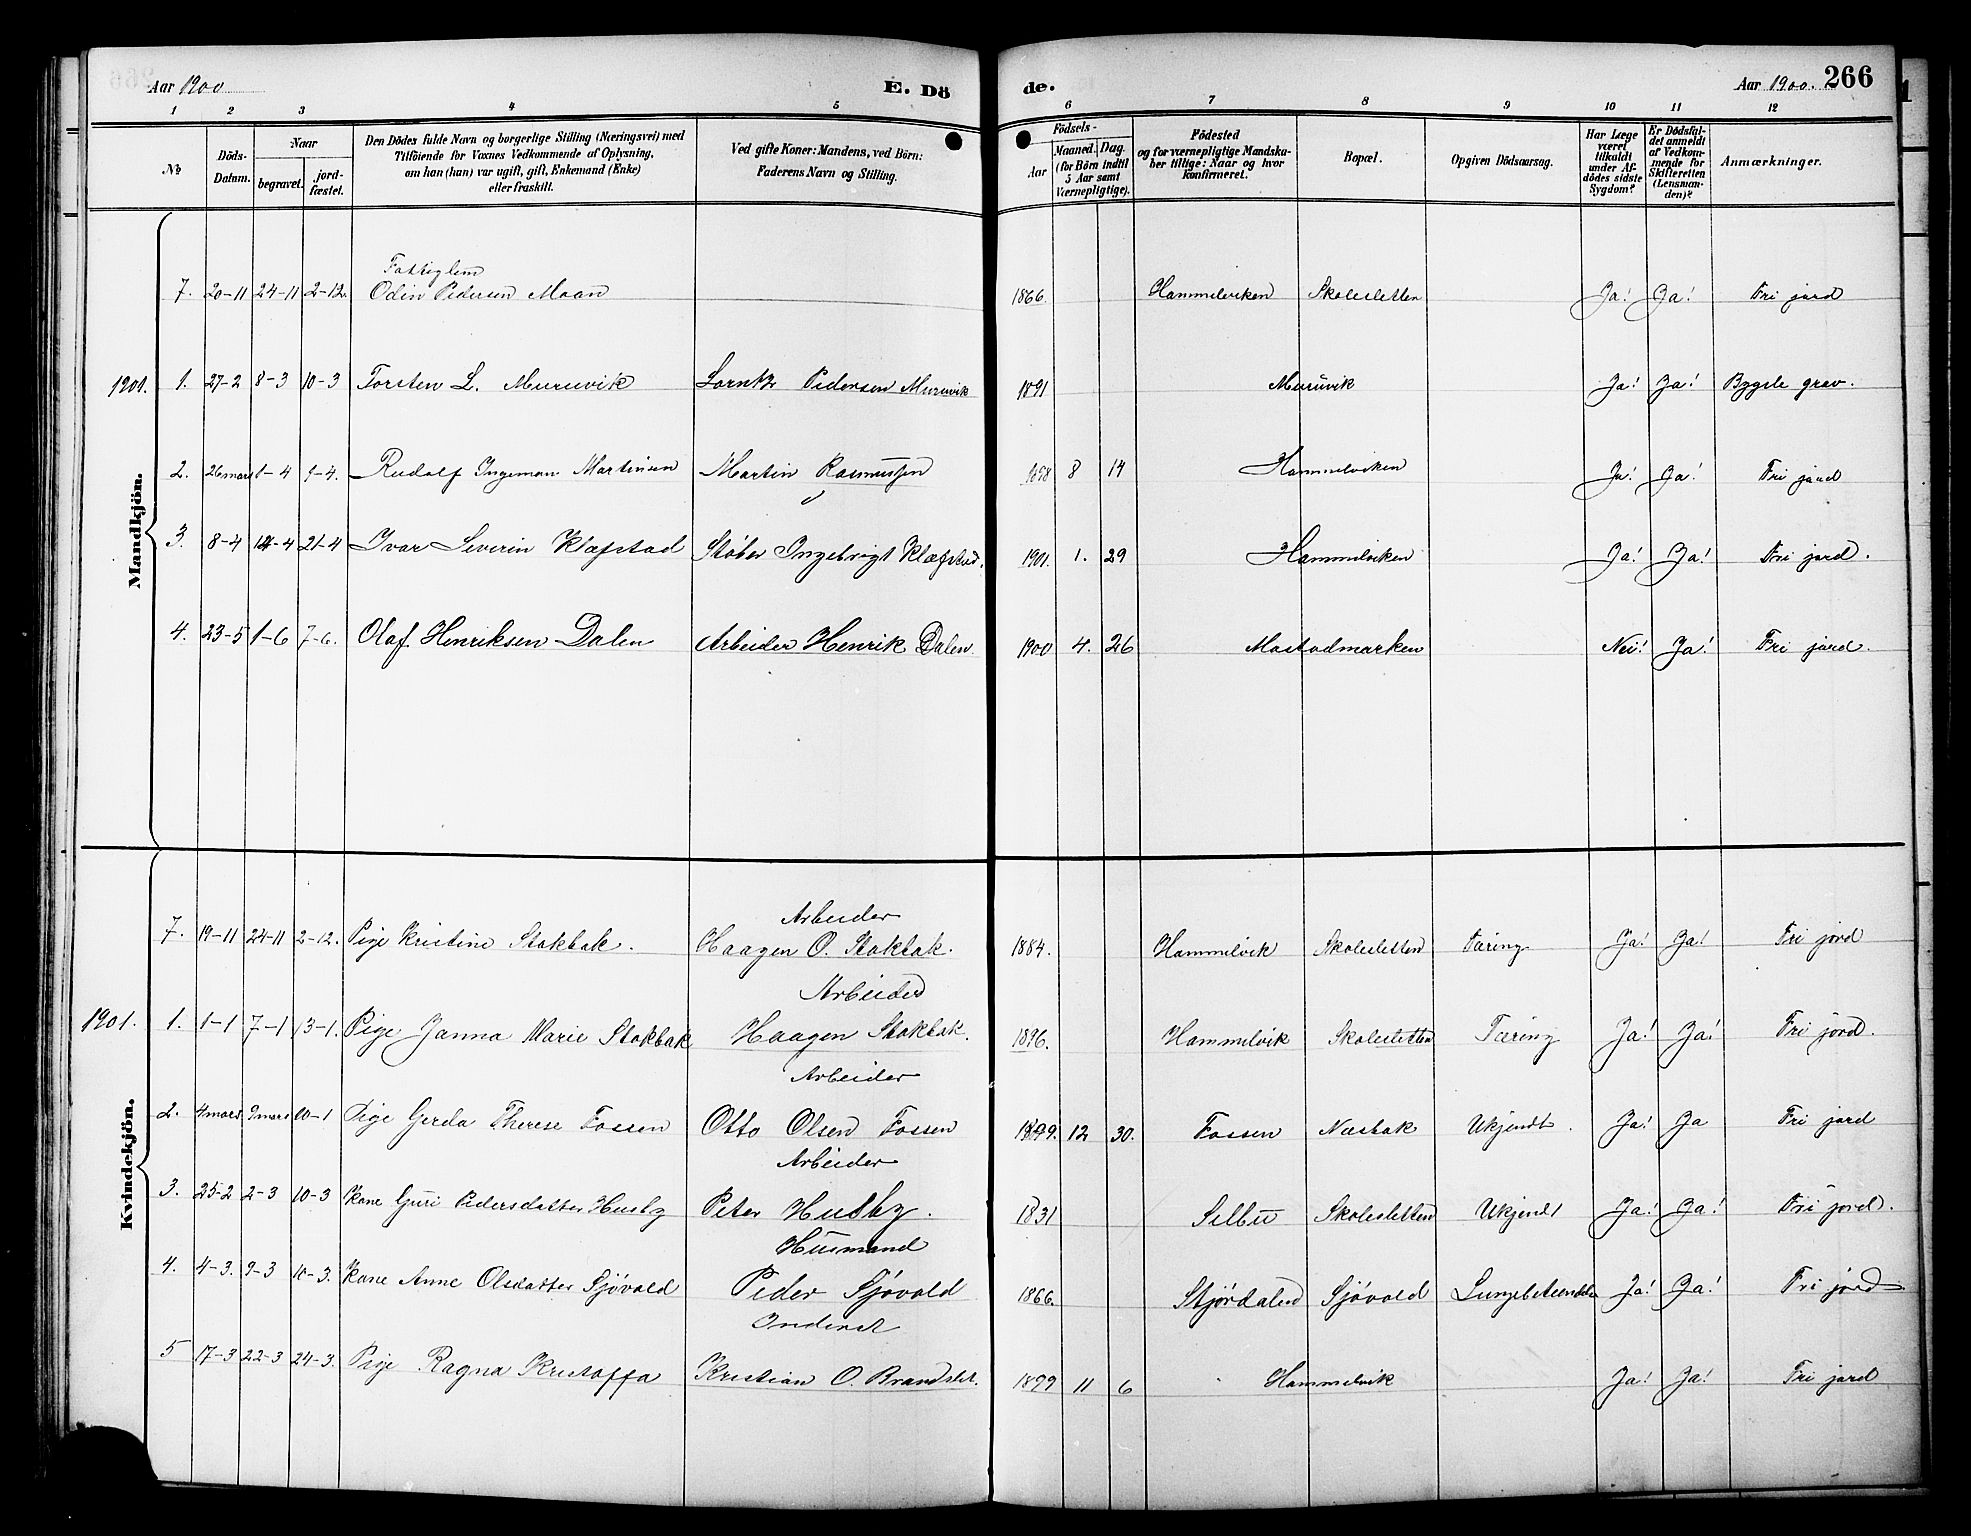 Aar 1900
E. Dö
de.
Aar 1900. 266
1 2 3 4 5 6 7 8 9 10 11 12
No
Döds-Datum.
Naar
begravet.
jord-fæstet.
Den Dödes fulde Navn og borgerlige Stilling (Næringsvei) med
Tilföiende for Voxnes Vedkommende af Oplysning,
om han (han) var ugift, gift, Enkemand (Enke)
eller fraskilt.
Ved gifte Koner: Mandens, ved Börn:
Faderens Navn og Stilling.
Födsels-
Aar
Maaned. Dag.
(for Börn indtil
5 Aar samt
Værnepligtige).
Födested
og for værnepligtige Mandska-
ber tillige: Naar og hvor
konfirmeret.
Bopæl.
Opgiven Dödsaarsag.
Har Læge
været
tilkaldt
under Af-
dödes sidste
Sygdom?
Er Dödsfal-
det anmeldt
af Vedkom-
mende for
Skifteretten
(Lensman-
den)?
Anmærkninger.
Mandkjön.
7. 20-11 24-11 2-12. Odin Pedersen Moan 1866. Hammelviken Skolesletten Ja! Ja! Fri jord
1901. 1. 27-2 8-3 10-3 Torsten L. Muruvik Lorntz Pedersen Muruvik 1891 Muruvik Ja! Ja! Bygsle grav.
2. 26 mars 1-4 9-4. Rudolf Ingeman Martinsen Martin Rasmussen 1898 8 14 Hammelviken Ja! Ja! Fri jord
3. 8-4 14-4 21-4 Ivar Severin Klæfstad Støber Ingebrigt Klæfstad. 1901. 1. 29 Hammelviken Ja! Ja! Fri jord.
4. 23-5 1-6 7-6. Olaf Henriksen Dalen Arbeider Henrik Dalen 1900 4. 26 Mostadmarken Nei! Ja! Fri jord.
Kvindekjön.
Arbeider
7. 19-11 24-11 2-12. Pige Kristine Stokbak. Haagen O. Stokbak. 1884. Hammelvik Skolesletten Tæring Ja! Ja! Fri jord
Arbeider
1901. 1. 1-1 7-1 13-1. Pige Janna Marie Stokbak Haagen Stokbak. 1896. Hammelvik Skolesletten Tæring Ja! Ja! Fri jord.
Arbeider
2. 4 mars 9 mars 10-1 Pige Gerda Therese Fossen Otto Olsen Fossen 1899. 12 30. Fossen Næsbak Ukjendt. Ja! Ja Fri jord
Arbeider
3. 25-2 2-3 10-3 Kone Guri Pedersdatter Husby Peter Husby. 1831 Selbu Skolesletten Ukjendt Ja! Ja! Fri jord.
Husmand
4. 4-3. 9-3 10-3. Kone Anne Olsdatter Sjøvold Peder Sjøvold 1866. Stjørdalen Sjøvold Ja! Ja! Fri jord
Inderst
5 17-3 22-3 24-3. Pige Ragna Kristoffa Kristian O. Brandslet. 1899 11 6 Hammelvik Ja! Ja! Fri jord